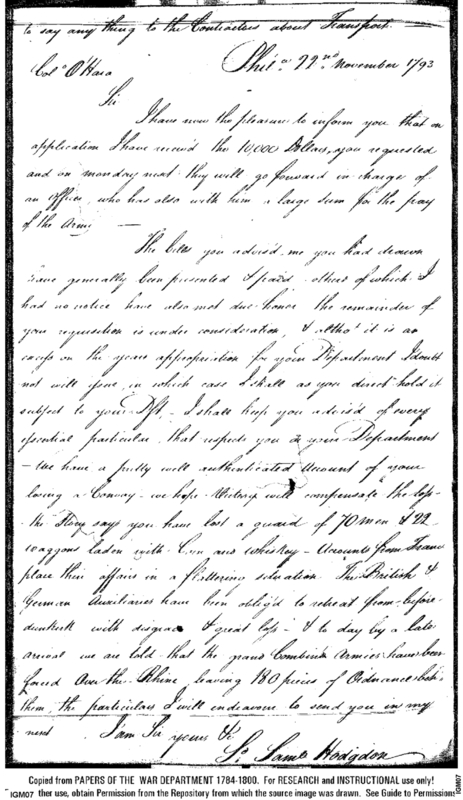 to say any thing to the Contractors about Transport.
Phila. 22nd November 1793
Colo. O'Hara
Sir
I have now the pleasure to inform you that on
application I have receivd the 10,000 Dollars, you requested
and on monday next they will go forward in charge of
an officer, who has also with him a large sum for the pay
of the Army —
The bills you advis'd me you had drawn
have generally been presented & paid - others of which I
had no notice have also met due honor the remainder of
your requisition is under consideration, & altho' it is an
excess on the years appropriation for your Department I doubt
not will in which case I shall as you direct hold it
subject to your Dft. - I shall keep you advis'd of every
essential particular that respects you or your Department
- We have a pretty well authenticated Account of your
losing a Convoy - we hope Victory will compensate the loss -
the Story says you have lost a guard of 70 men & 22
waggons laden with Corn and whiskey - Accounts from France
place their affairs in a flattering situation. The British &
German Auxiliaries have been oblig'd to retreat from before
dunkirk with disgrace & great loss - & to day by a late
arrival we are told that the grand Combin'd Armies have been
forced Over the Rhine leaving 180 pieces of Ordnance behind
them, the particulars I will endeavour to send you in my
next I am Sir yours &c
Sd. Saml Hodgdon
Copied from PAPERS OF THE WAR DEPARTMENT 1784-1800. For RESEARCH and INSTRUCTIONAL use only!
IGM07 ther use, obtain Permission from the Repository from which the source image was drawn. See Guide to Permission
IGM07